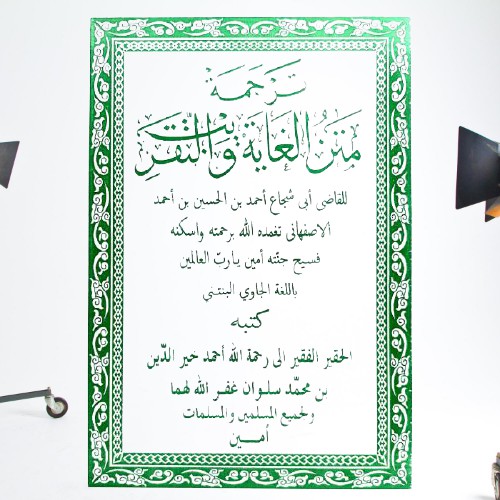 تَرْجَمَة
مَتْنُ الغَايَةِ وَالتَّقْرِيبْ
للقاضى أبى شجاع أحمد بن الحسين بن أحمد
الاصفهانى تغمده الله برحمته واسكنه
فسيح جنّته أمين يا ربّ العالمين
باللغة الجاوي البنتني
كتبه
الحقير الفقير الى رحمة الله أحمد خير الدّين
بن محمّد سلوان غفر الله لهما
ولجميع المسلمين والمسلمات
أمين